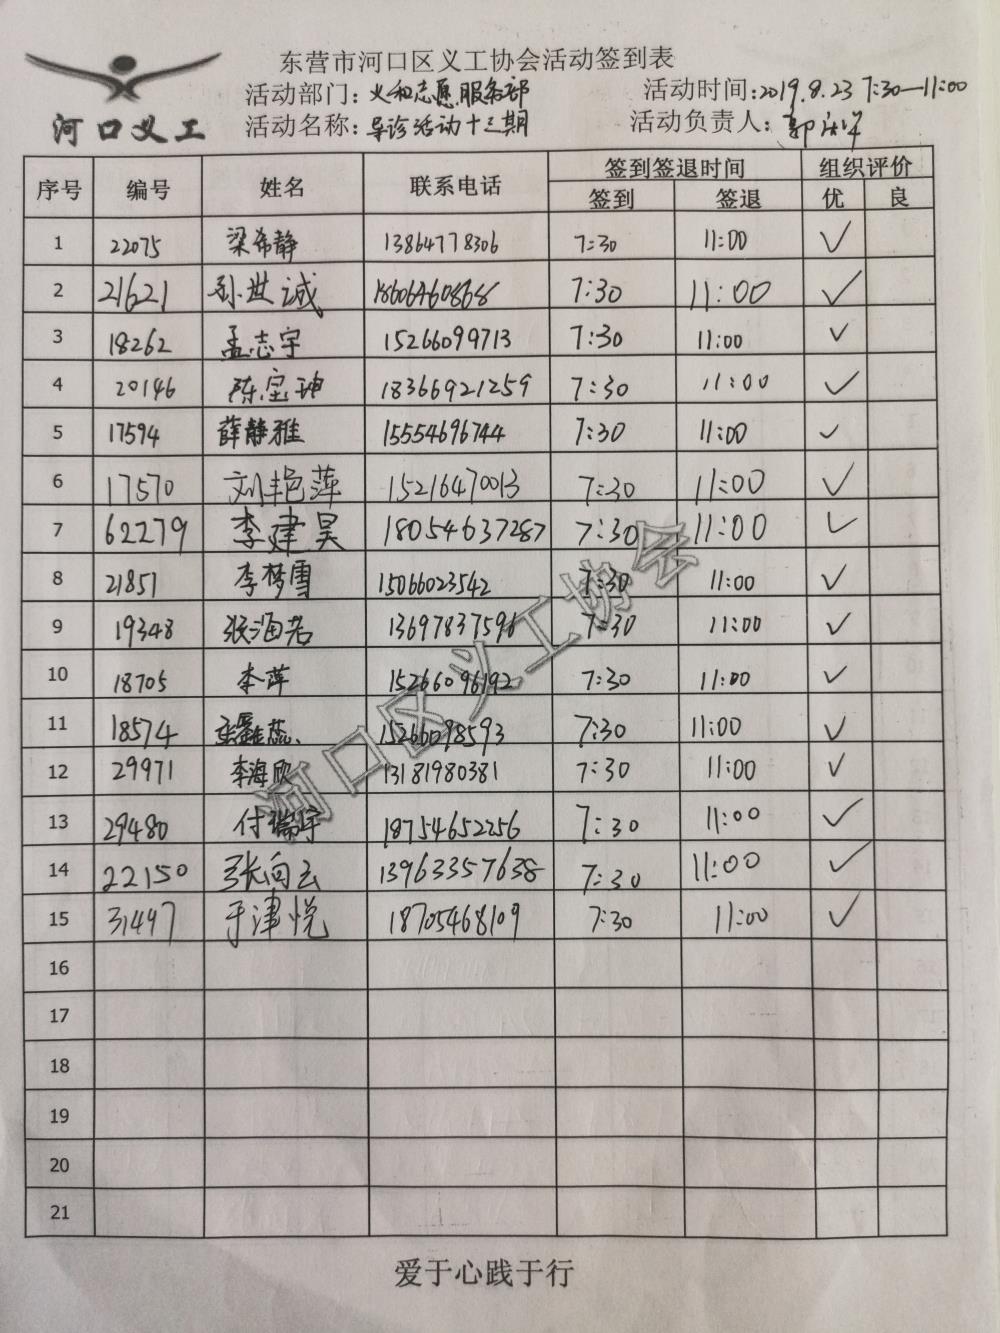 东营市河口区义工协会活动签到表
活动部门: 义和志愿服务部 活动时间:2019.8.23 7:30—11:00
河口义工 活动名称: 导诊活动十三期 活动负责人: 郭
序号 编号 姓名 联系电话 签到签退时间 组织评价
签到 签退 优 良
1 22075 梁希静 13864778306 7:30 11:00 ✓
2 21621 孙世诚 18606460868 7:30 11:00 ✓
3 18262 孟志宇 15266099713 7:30 11:00 ✓
4 20146 陈宝珅 18366921259 7:30 11:00 ✓
5 17594 薛静雅 15554696744 7:30 11:00 ✓
6 17570 刘艳萍 15216470013 7:30 11:00 ✓
7 62279 李建昊 18054637287 7:30 11:00 ✓
8 21851 李梦雪 15066023542 7:30 11:00 ✓
9 19348 张海若 13697837596 7:30 11:00 ✓
10 18705 李萍 15266096192 7:30 11:00 ✓
11 18574 张鑫蕊 15266098593 7:30 11:00 ✓
12 29971 李海欣 13181980381 7:30 11:00 ✓
13 29480 付瑞宇 18754652256 7:30 11:00 ✓
14 22150 张向云 13963357638 7:30 11:00 ✓
15 31497 于津悦 18705468109 7:30 11:00 ✓
16
17
18
19
20
21
河口区义工协会
爱于心践于行